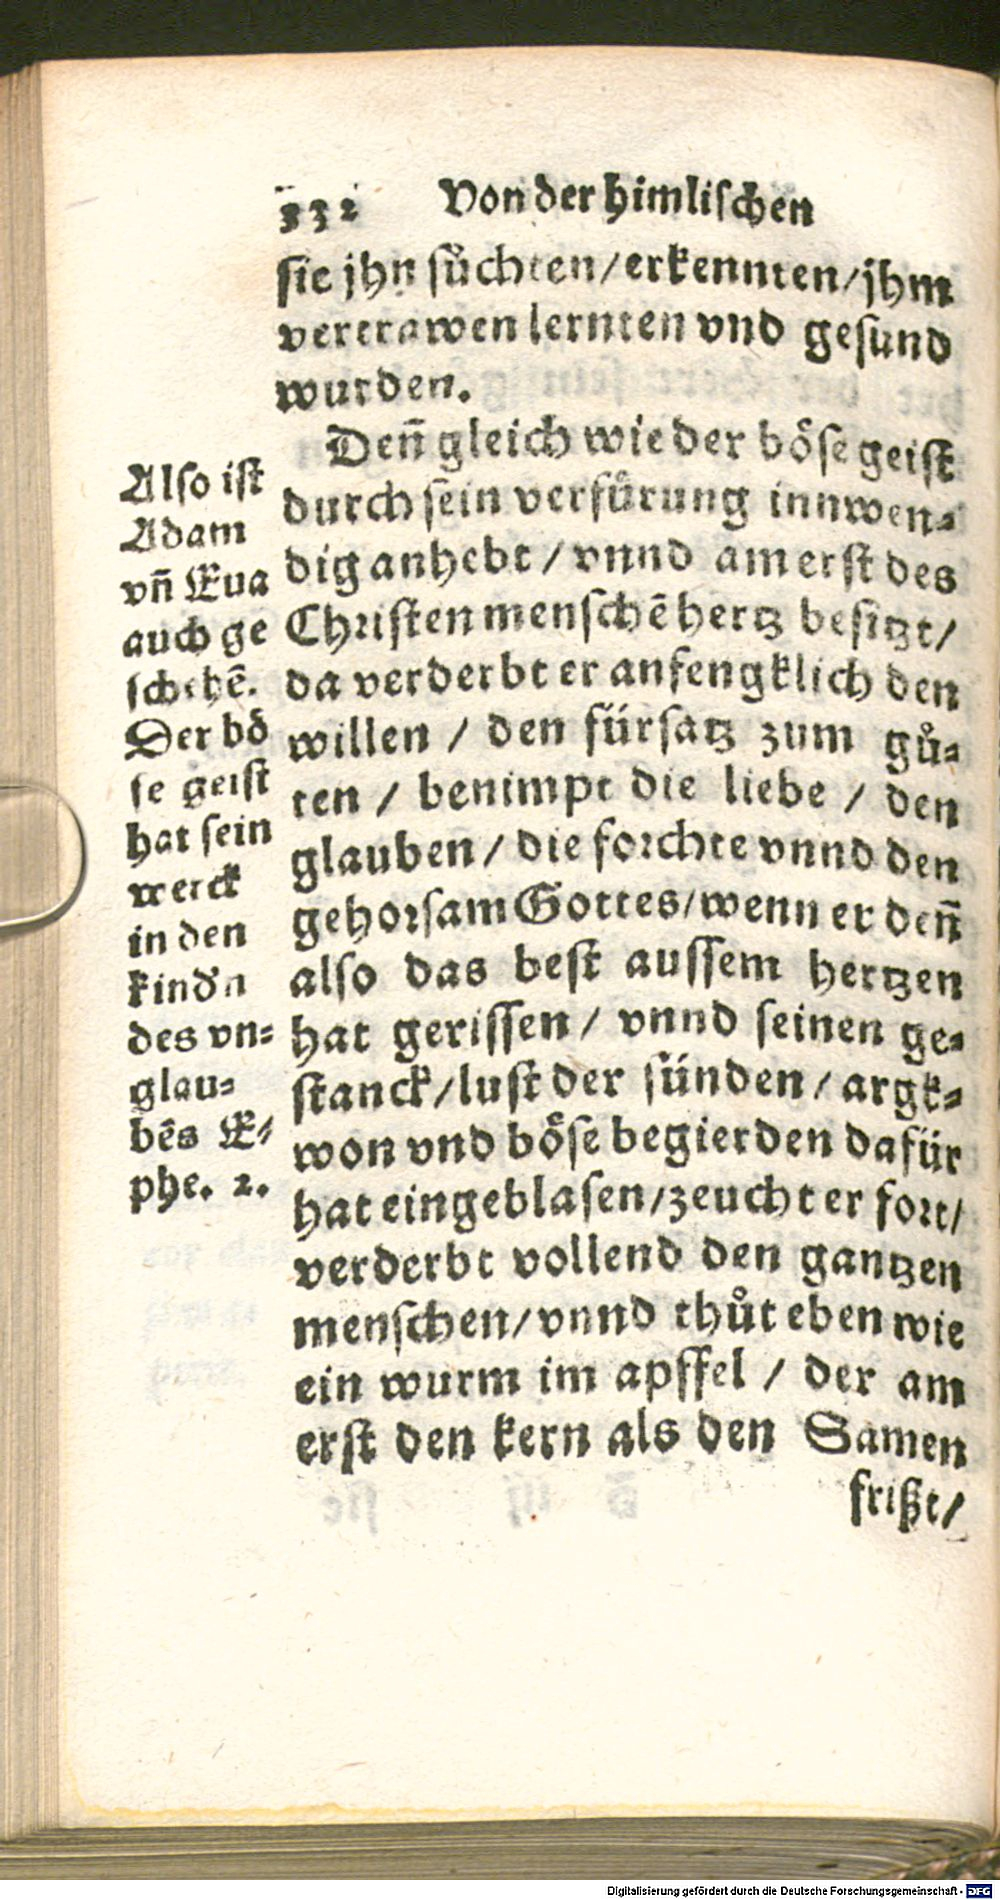 332 Von der himlischen
sie jhn sůchten/erkennten/jhm
vertrawen lernten vnd gesund
wurden.
Deñ gleich wie der böse geist
durch sein verfürung innwen-
dig anhebt / vnnd am erst des
Christen menschẽ hertz besitzt/
da verderbt er anfengklich den
willen / den fürsatz zum gů-
ten / benimpt die liebe / den
glauben / die forchte vnnd den
gehorsam Gottes/wenn er deñ
also das best aussem hertzen
hat gerissen / vnnd seinen ge-
stanck/lust der sünden / argk-
won vnd böse begierden dafür
hat eingeblasen/zeucht er fort/
verderbt vollend den gantzen
menschen/vnnd thůt eben wie
ein wurm im apffel / der am
erst den kern als den Samen
frißt/
Also ist
Adam
vñ Eua
auch ge
schehẽ.
Der bö
se geist
hat sein
werck
in den
kindn
des vn-
glau-
bẽs E-
phe. 2.
Digitalisierung gefördert durch die Deutsche Forschungsgemeinschaft - DFG